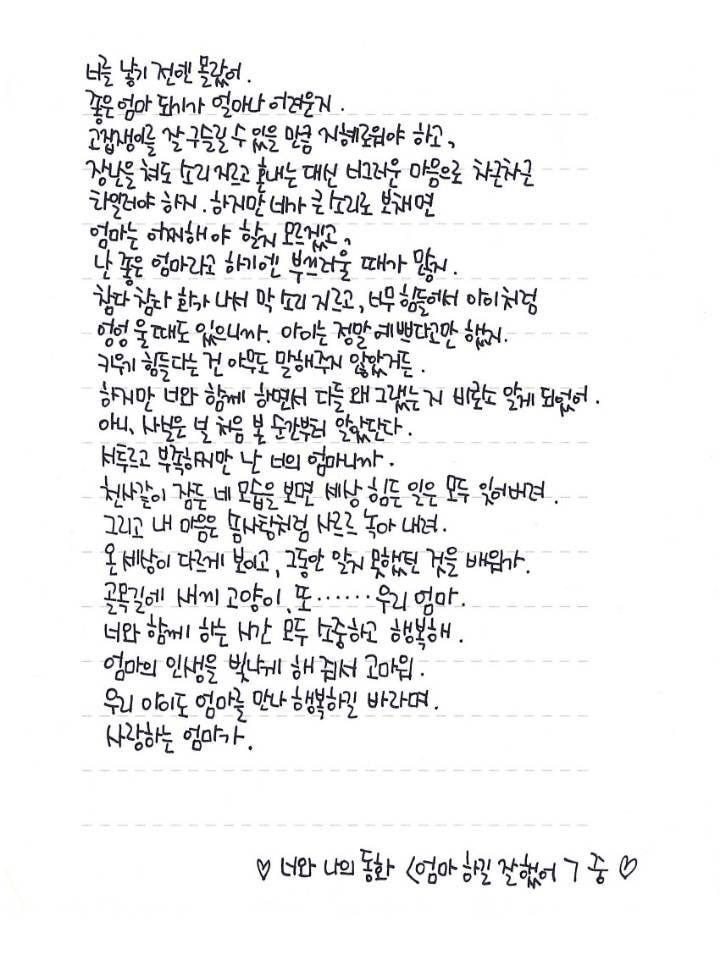 너를 낳기 전엔 몰랐어.
좋은 엄마 되기가 얼마나 어려운지.
고집쟁이를 잘 구슬릴 수 있을 만큼 지혜로워야 하고,
장난을 쳐도 소리 지르고 혼내는 대신 너그러운 마음으로 차근차근
타일러야 하지. 하지만 네가 큰 소리로 보채면
엄마는 어찌해야 할지 모르겠고,
난 좋은 엄마라고 하기엔 부끄러울 때가 많지.
참다 참다 화가 나서 막 소리 지르고, 너무 힘들어서 아이처럼
엉엉 울 때도 있으니까. 아이는 정말 예쁘다고만 했지.
키우기 힘들다는 건 아무도 말해주지 않았거든.
하지만 너와 함께 하면서 다들 왜 그랬는지 비로소 알게 되었어.
아니, 사실은 널 처음 본 순간부터 알았단다.
서투르고 부족하지만 난 너의 엄마니까.
천사같이 잠든 네 모습을 보면 세상 힘든 일은 모두 잊어버려.
그리고 내 마음은 솜사탕처럼 사르르 녹아 내려.
온 세상이 다르게 보이고, 그동안 알지 못했던 것을 배워가.
골목길에 새끼 고양이, 또······우리 엄마.
너와 함께 하는 시간 모두 소중하고 행복해.
엄마의 인생을 빛나게 해 줘서 고마워.
우리 아이도 엄마를 만나 행복하길 바라며.
사랑하는 엄마가.
♡ 너와 나의 동화 <엄마 하길 잘했어> 중 ♡